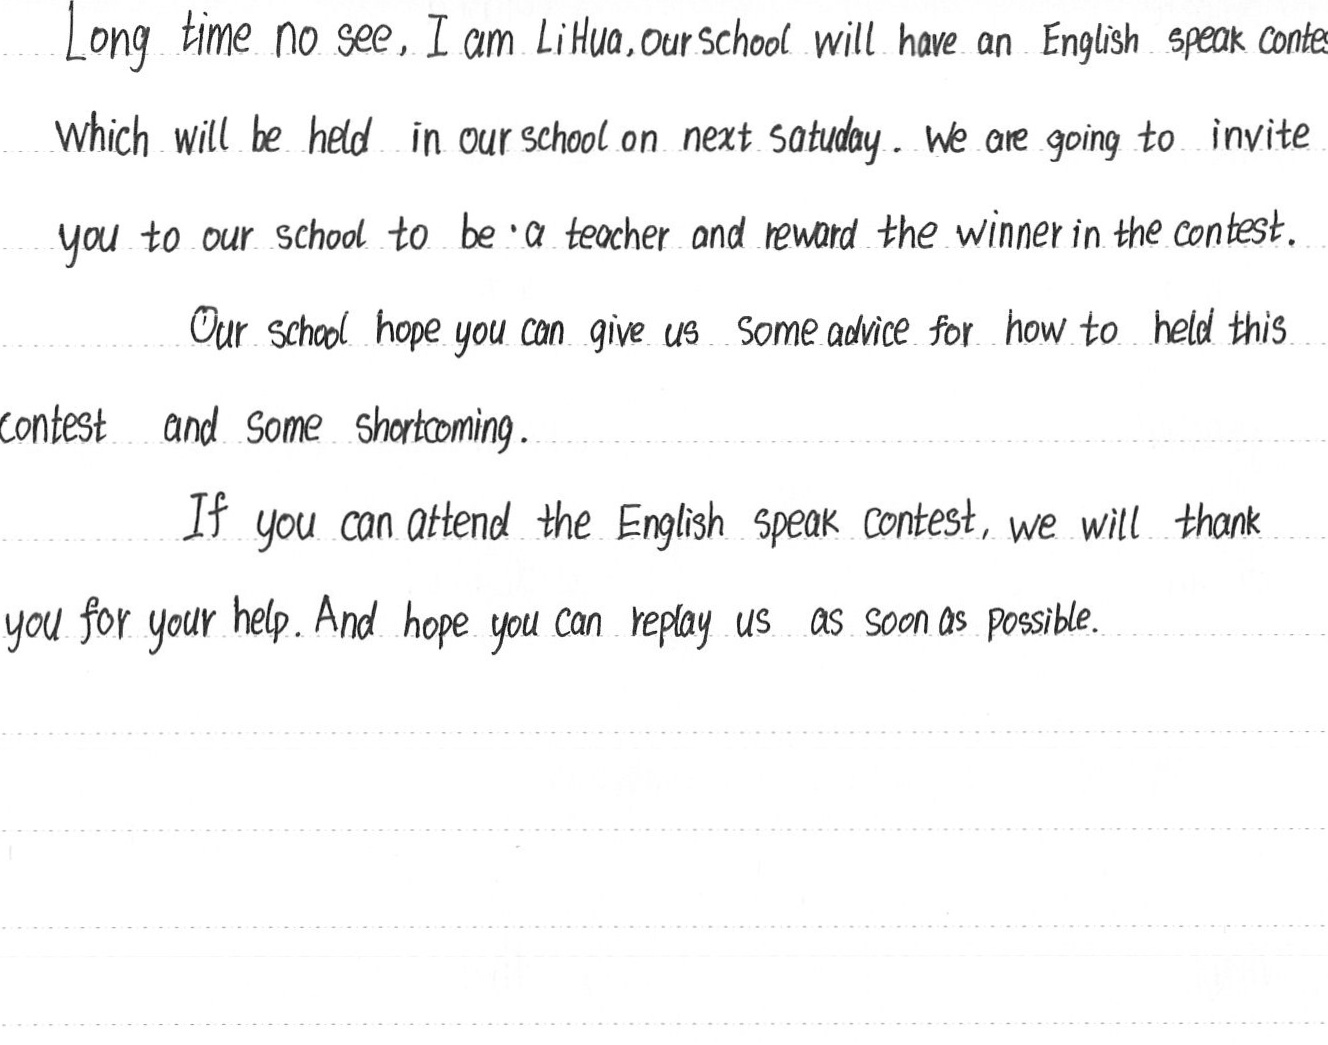 Long time no see, I am LiHua, our school will have an English speak contes
which will be held in our school on next satuday. We are going to invite
you to our school to be a teacher and reward the winner in the contest.
Our school hope you can give us some advice for how to held this
contest and some shortcoming.
If you can attend the English speak contest, we will thank
you for your help. And hope you can replay us as soon as possible.